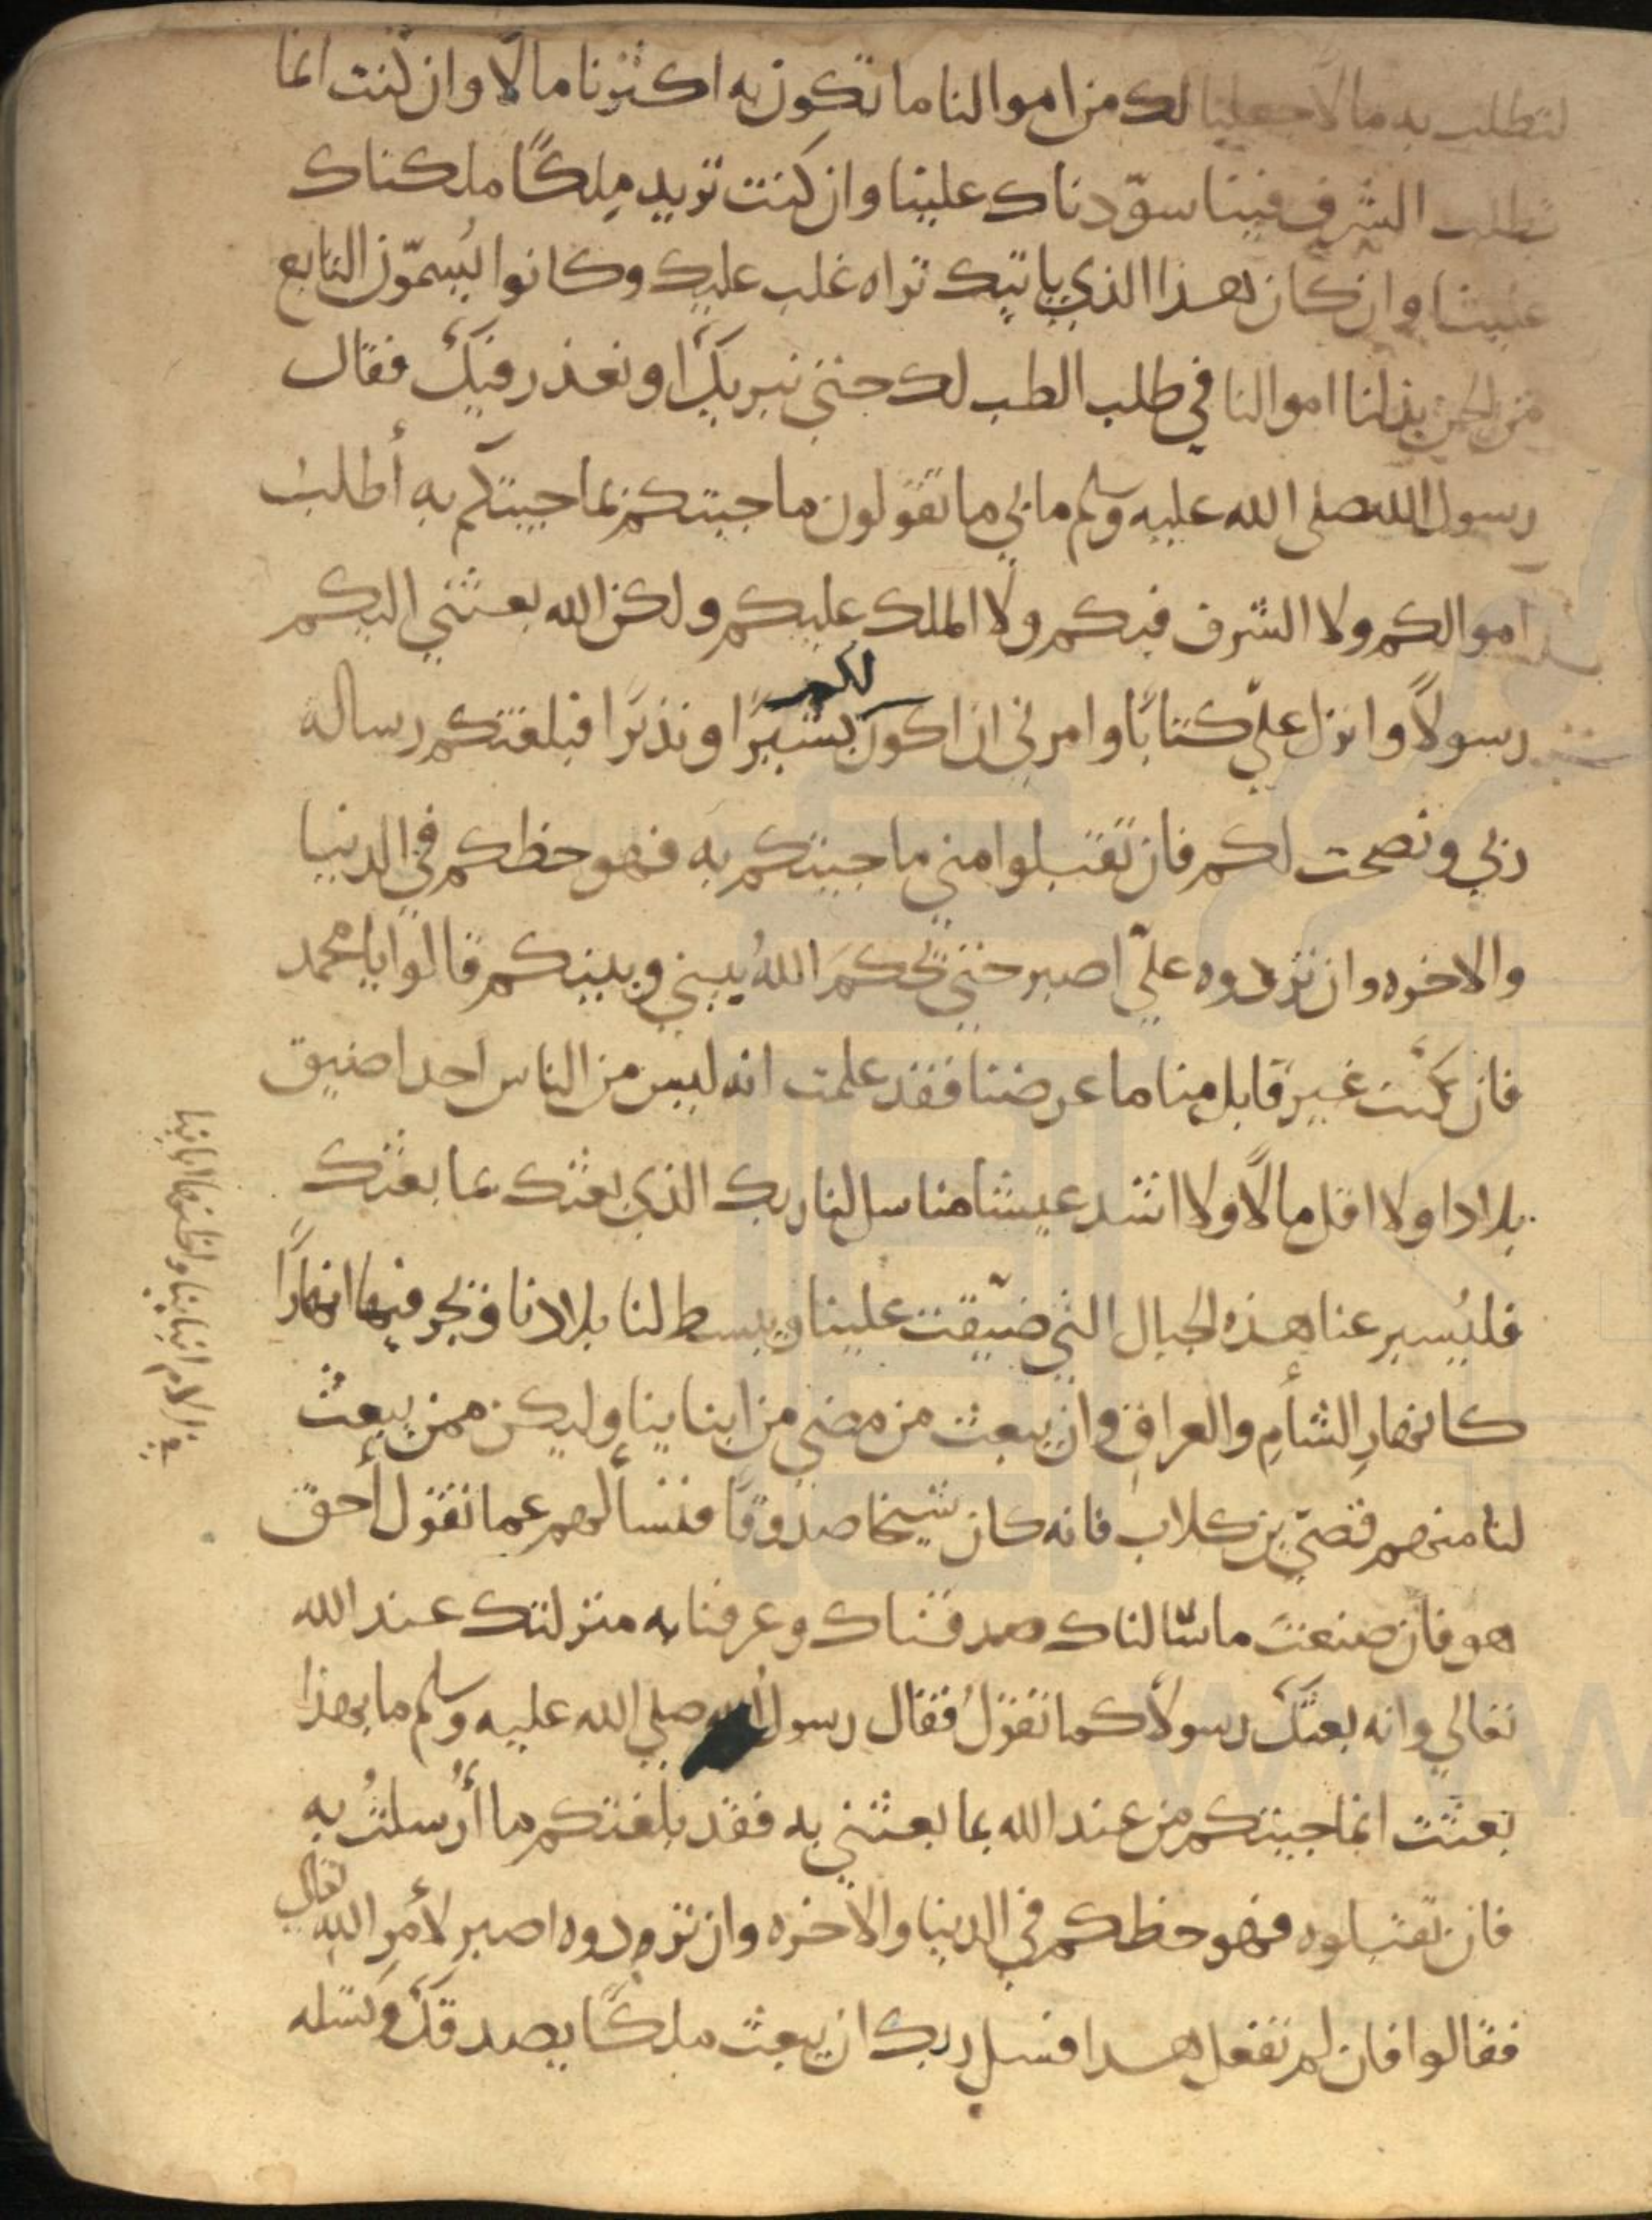 لتطلب به مالا جعلنا لك من اموالنا ما تكون به اكثرنا مالًا وان كنت انما
تطلب الشرف فينا سوّدناك علينا وان كنت تريد ملكًا ملكناك
علينا وان كان هذا الذي ياتيك تراه غلب عليك وكانوا يُسمّون التابع
من الجن بذلنا اموالنا في طلب الطب لك حتى نبريكَ او نعذر فيكَ فقال
رسول الله صلى الله عليه وسلم ما بي ما تقولون ما جيتكم بما جيتكم به أطلب
اموالكم ولا الشرف فيكم ولا الملك عليكم ولكن الله بعثني اليكم
رسولًا وانزل عليّ كتابًا وامرني ان اكون لكم بشيرًا ونذيرًا فبلغتكم رساله
ربي ونصحت لكم فان تقبلوا مني ما جيتكم به فهو حظكم في الدنيا
والاخره وان تردوه عليّ اصبر حتى يحكمَ اللهُ بيني وبينكم قالوا يا محمد
فان كنت غير قابل منا ما عرضنا فقد علمت انه ليس من الناس احد اضيق
بلادا ولا اقل مالًا ولا اشد عيشا منا سل لنا ربك الذي بعثك بما بعثك
فليُسير عنا هذه الجبال التي ضيّقت علينا ويبسط لنا بلادنا ويجر فيها انهارًا
كانهارِ الشأمِ والعراقِ وان يبعث من مضى من ابناينا وليكن ممن يبعثُ
لنا منهم قصيّ بن كلاب فانه كان شيخا صدوقًا فنسألهم عما تقول أحق
هو فان صنعت ما سالناك صدقناك وعرفنا به منزلتك عند الله
تعالي وانه بعثكَ رسولًا كما تقولُ فقال رسول الله صلي الله عليه وسلم ما بهذا
بعثت انما جيتكم من عند الله بما بعثني به فقد بلغتكم ما أُرسلتُ به
فان تقبلوه فهو حظكم في الدنيا والاخره وان تردوه اصبر لأمر الله تعالى
فقالوا فان لم تفعل هذا فسل ربك ان يبعث ملكًا يصدقكَ وتسله
في الام ابناينا واظنها اباينا